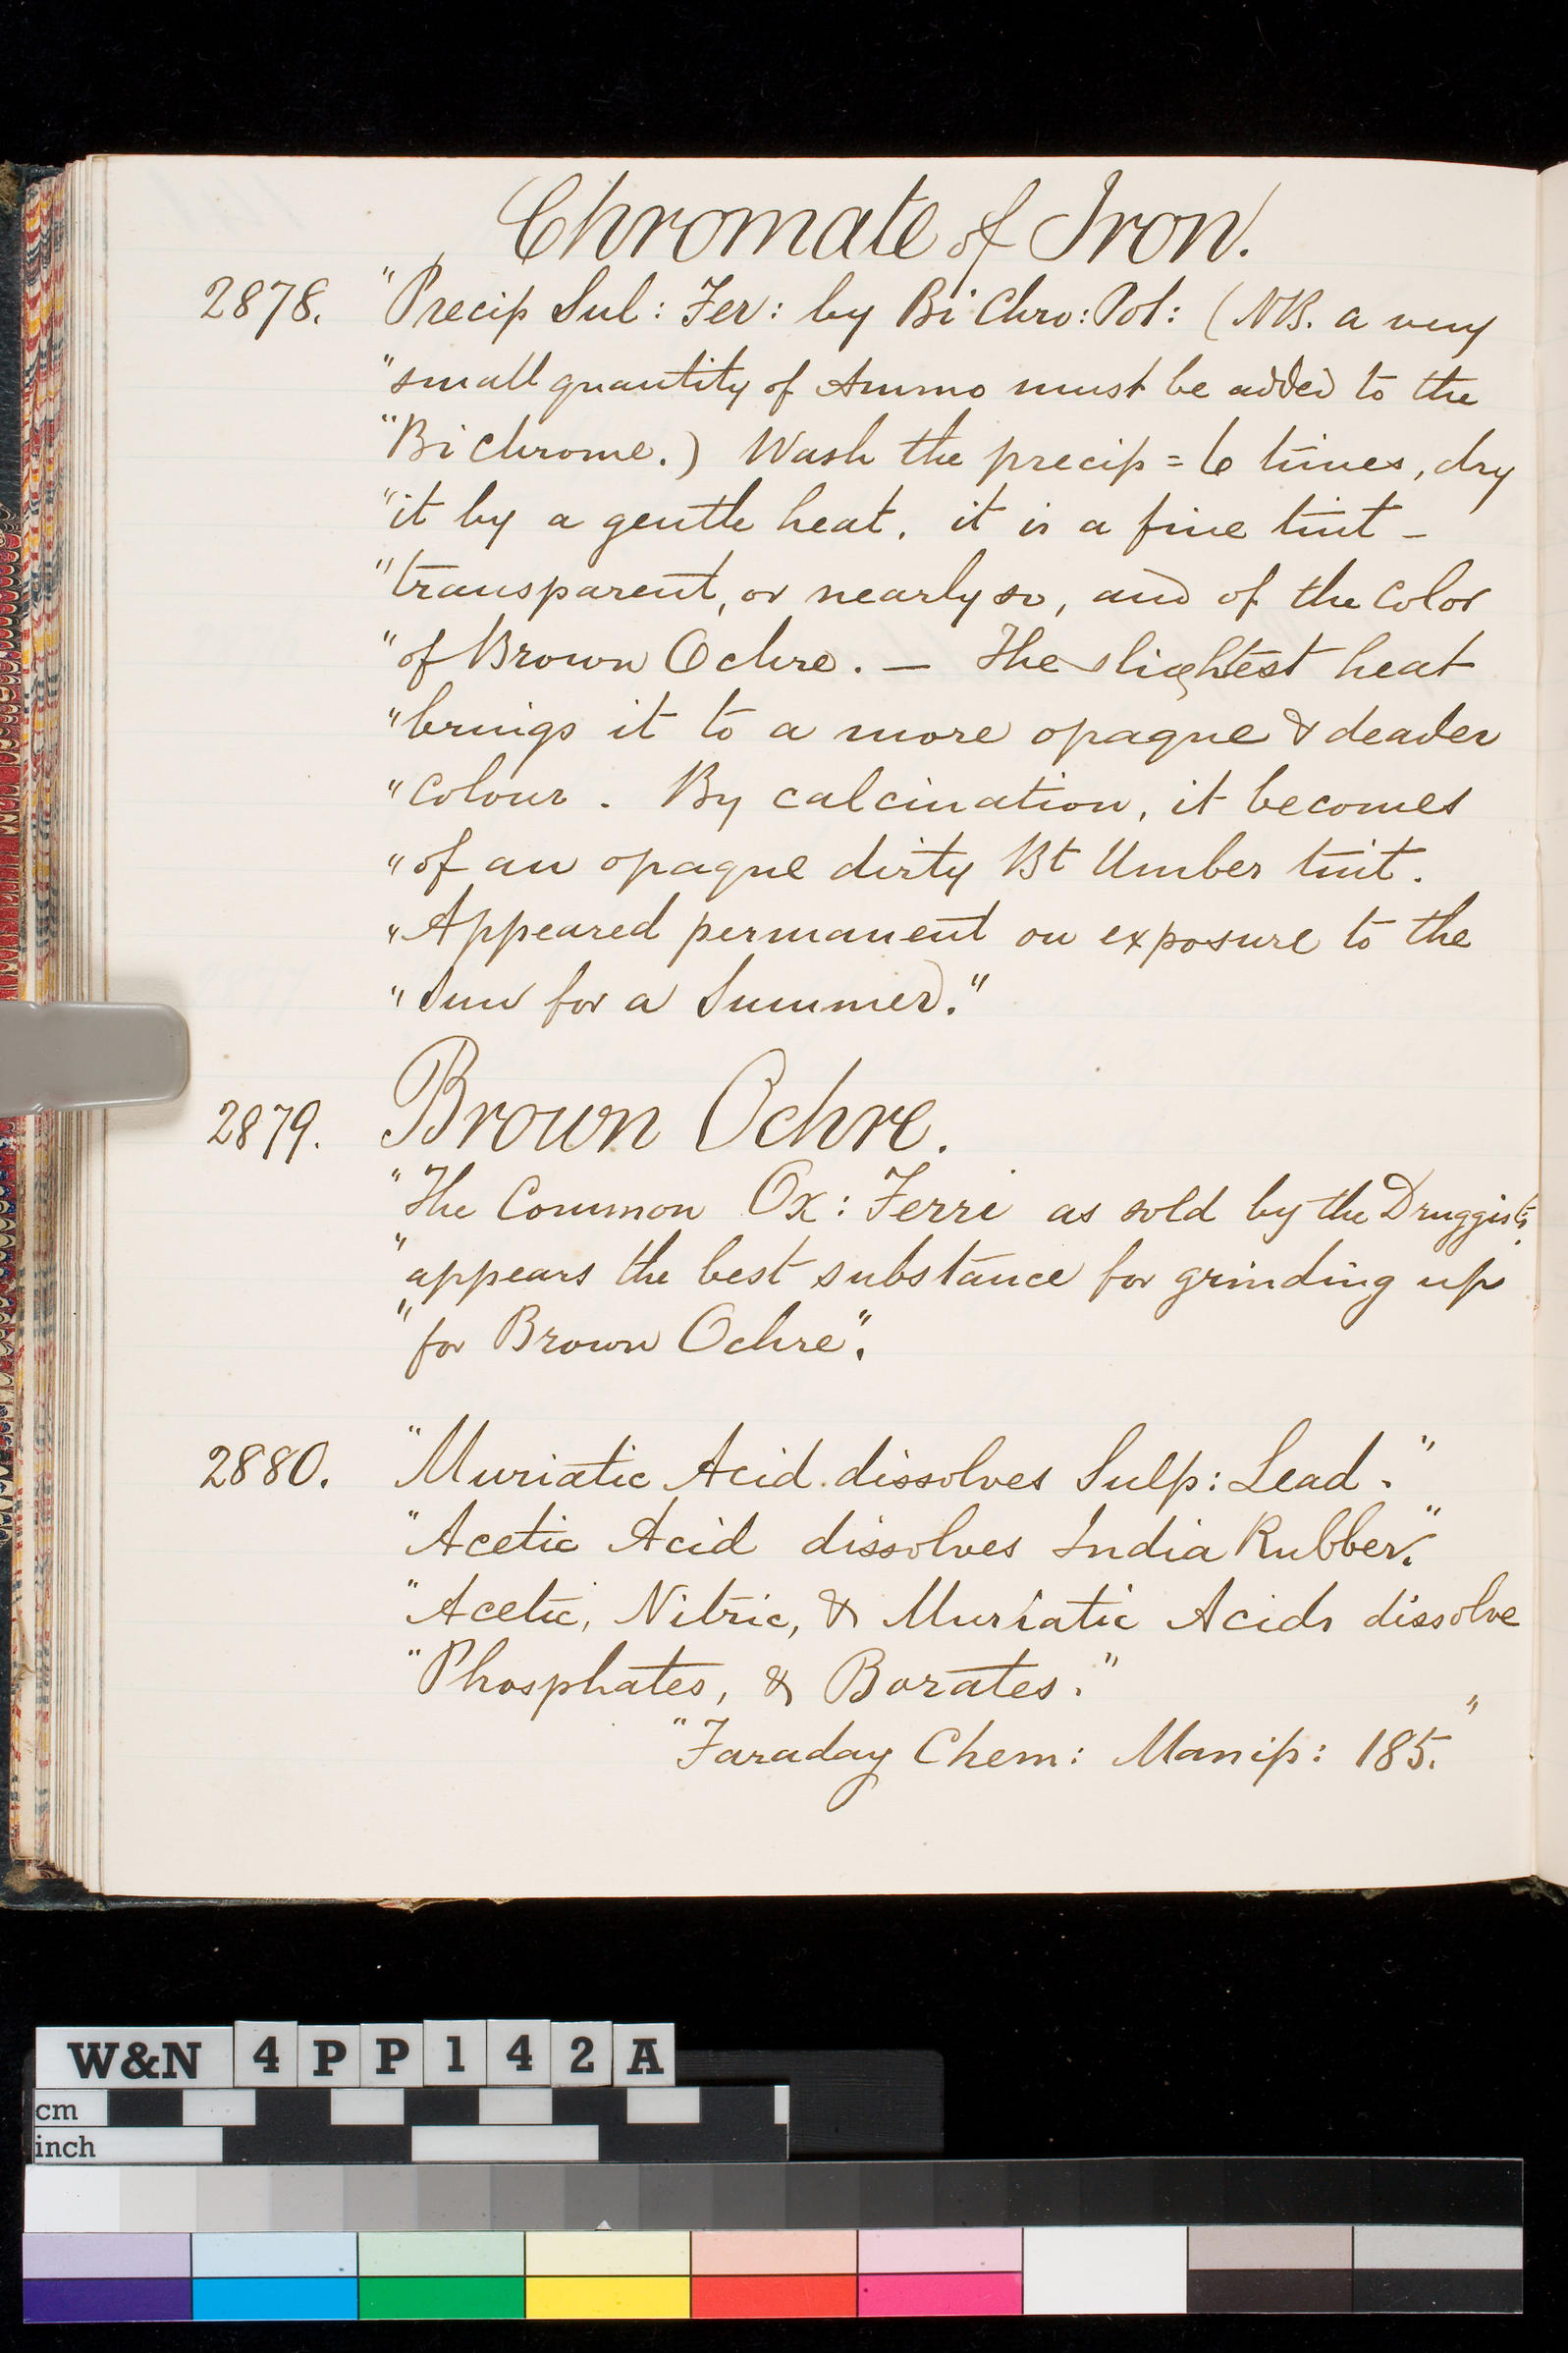 Chromate of Iron.
2878. "Precip Sul: Fer: by Bi Chro: Pot: (NB. a very
"small quantity of Ammo must be added to the
"Bi Chrome.) Wash the precip = 6 times, dry
"it by a gentle heat. it is a fine tint -
"transparent, or nearly so, and of the Color
"of Brown Ochre. — The slightest heat
"brings it to a more opaque & deader
"Colour. By calcination, it becomes
"of an opaque dirty Bt Umber tint.
"Appeared permanent on exposure to the
"Sun for a Summer."
2879. Brown Ochre.
"The Common Ox: Ferri as sold by the Druggists,
"appears the best substance for grinding up
"for Brown Ochre".
2880. "Muriatic Acid dissolves Sulp: Lead."
"Acetic Acid dissolves India Rubber."
"Acetic, Nitric, & Muriatic Acids dissolve
"Phosphates, & Borates."
"Faraday Chem: Manip: 185."
W&N 4PP142A
cm
inch